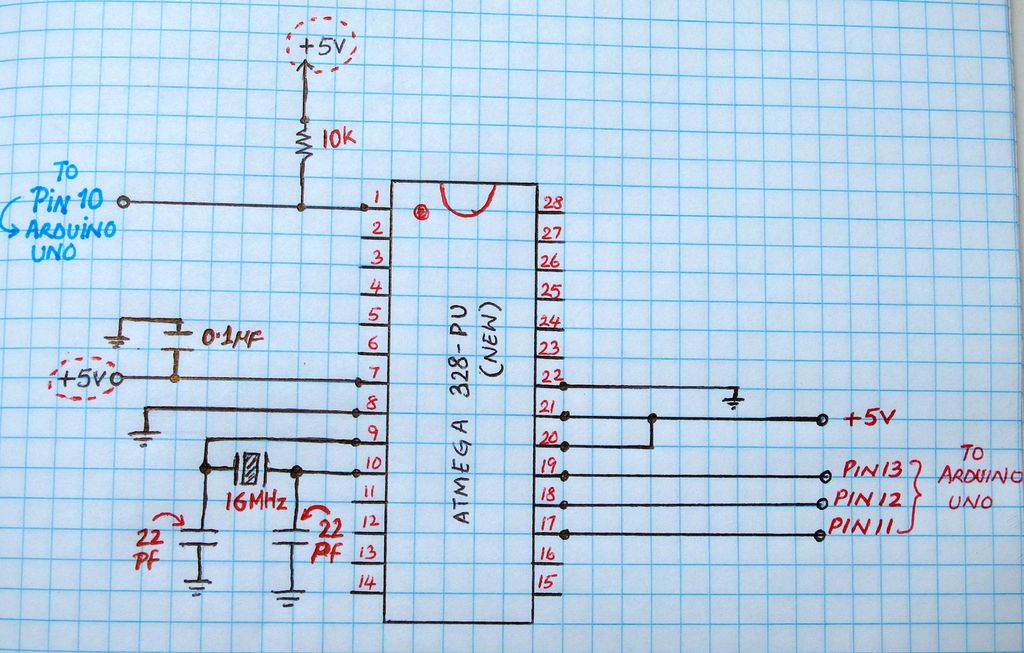 +5V
10K
TO
PIN 10
ARDUINO
UNO
1
2
3
4
5
6
7
8
9
10
11
12
13
14
28
27
26
25
24
23
22
21
20
19
18
17
16
15
ATMEGA 328-PU
(NEW)
0.1µF
+5V
16MHz
22
PF
22
PF
+5V
PIN 13
PIN 12
PIN 11
TO
ARDUINO
UNO